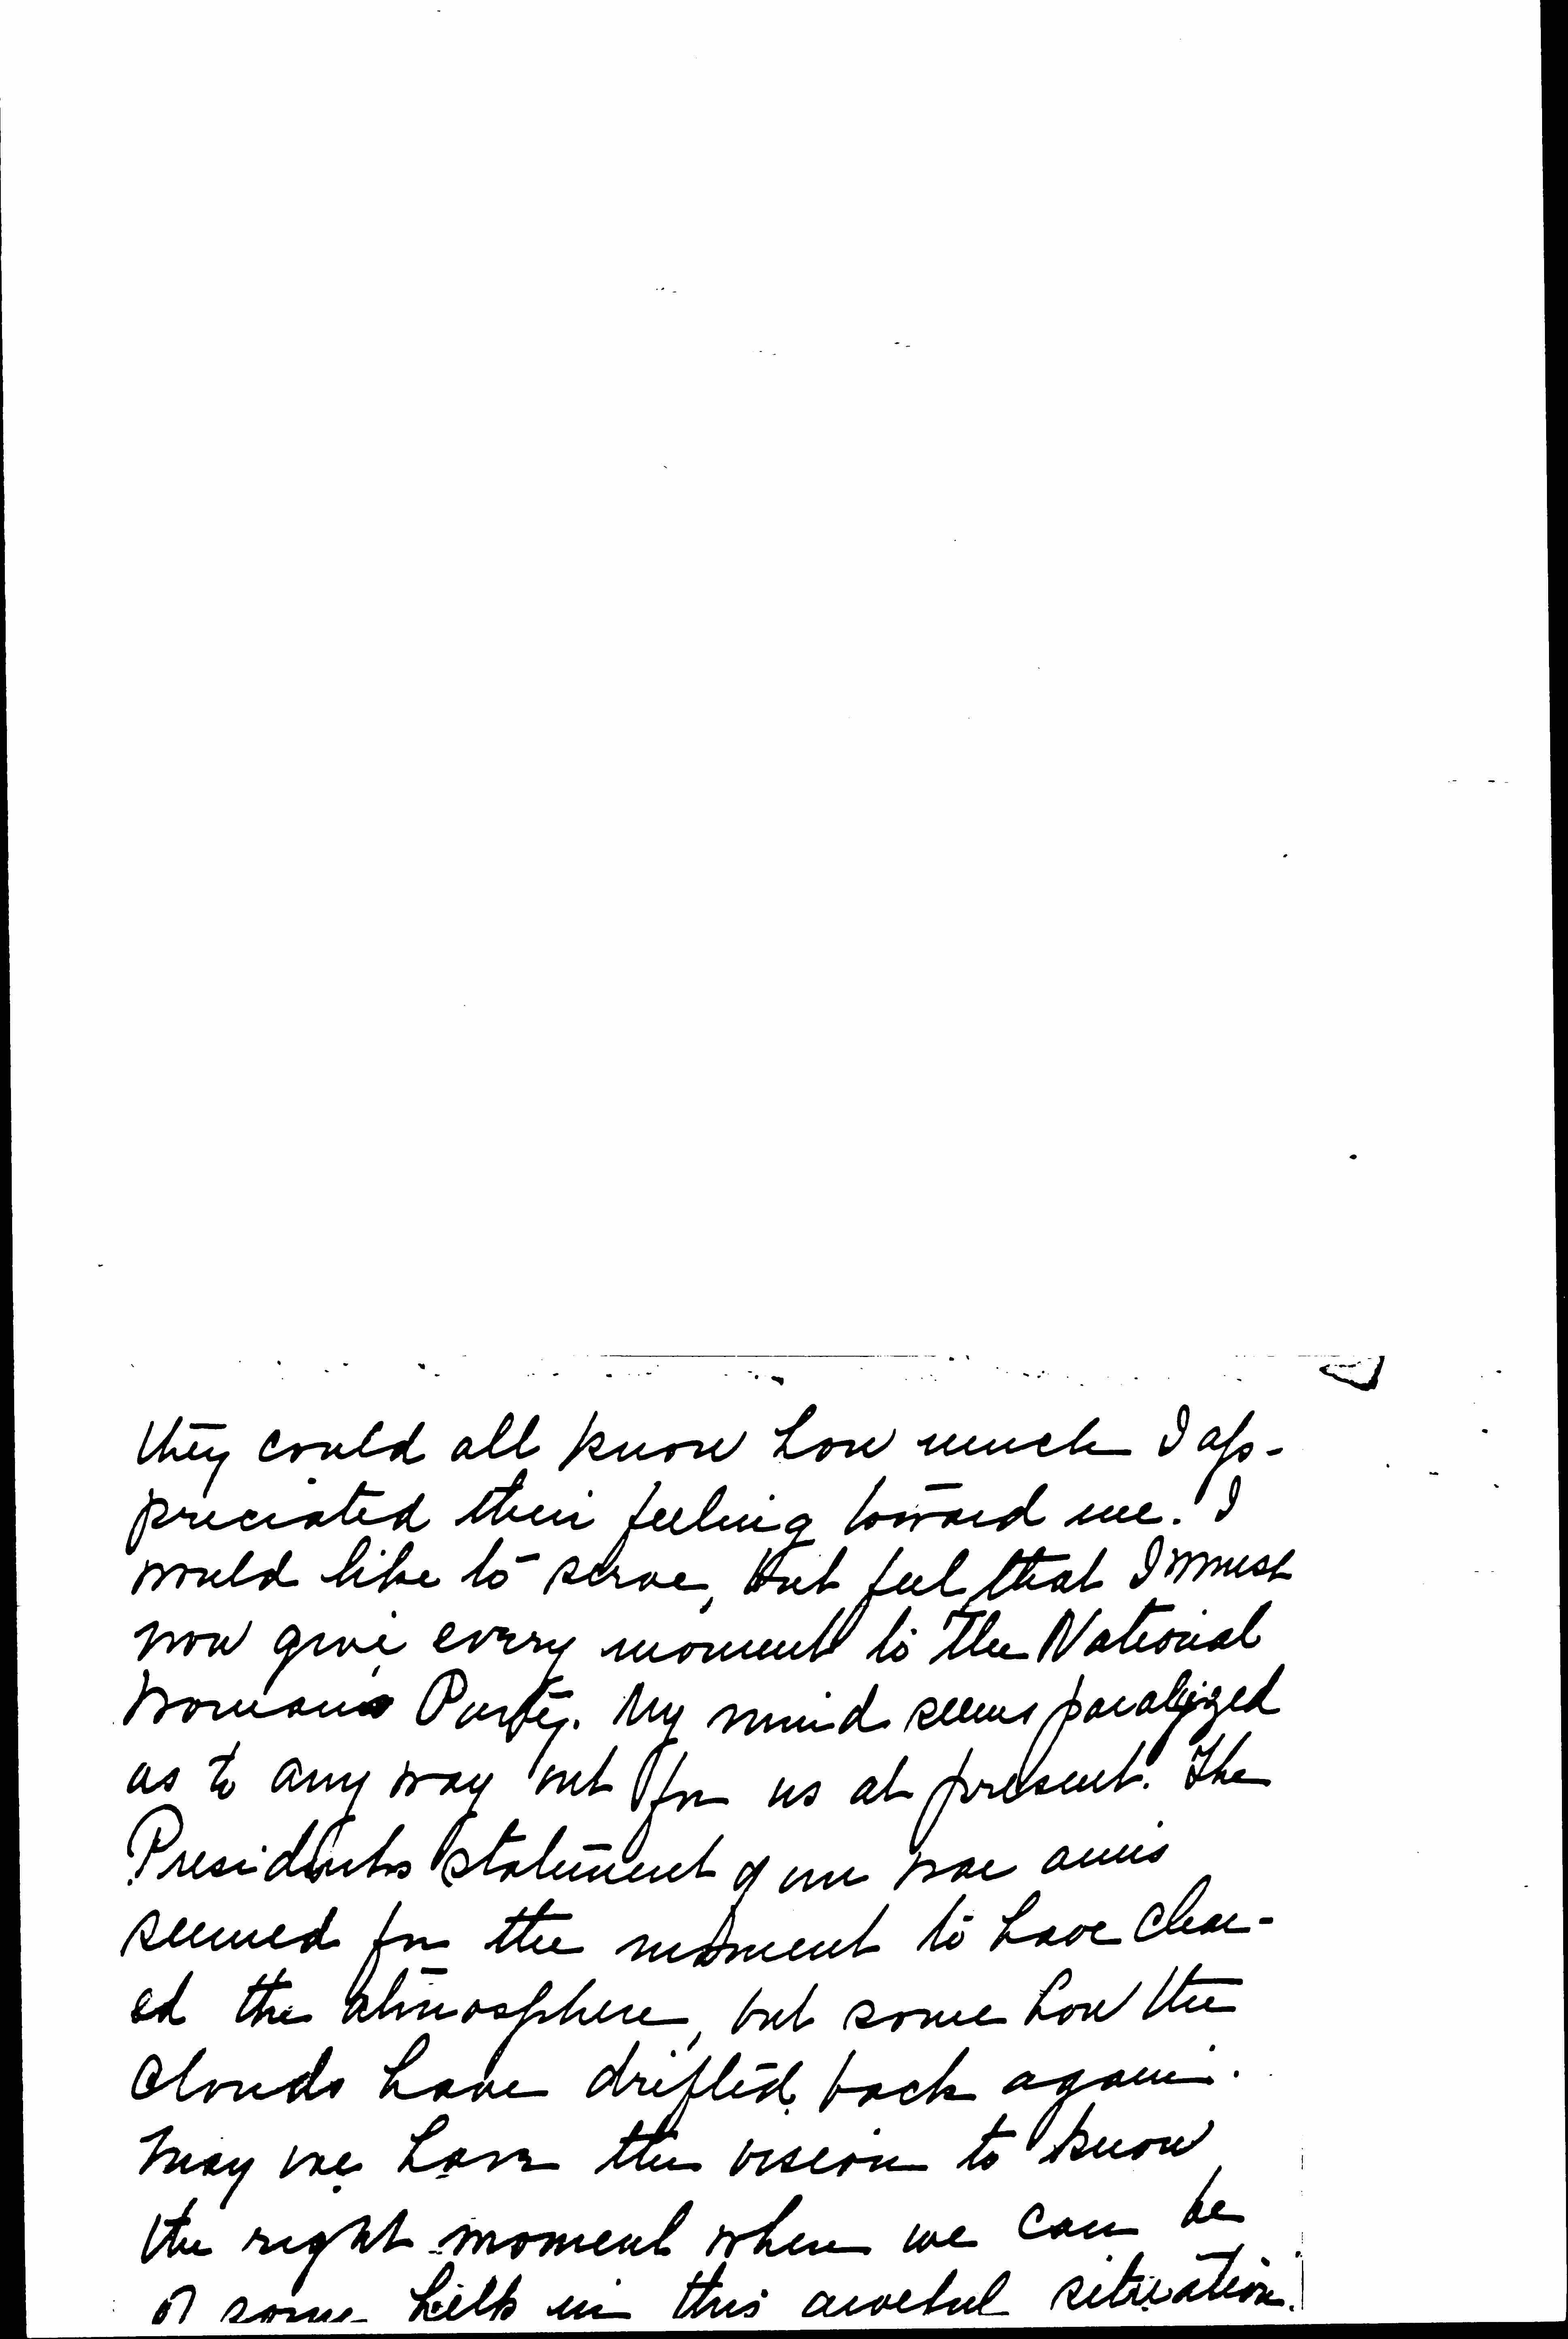 they could all know how much I ap-
preciated their feeling toward me. I
would like to serve, but feel that I must
now give every moment to the National
Woman's Party. My mind seems paralyzed
as to any way out for us at present. The
Presidents statement of our war aims
seemed for the moment to have clear-
ed the atmosphere, but some how the
clouds have drifted back again.
May we have the vision to know
the right moment when we can be
of some help in this awful situation.